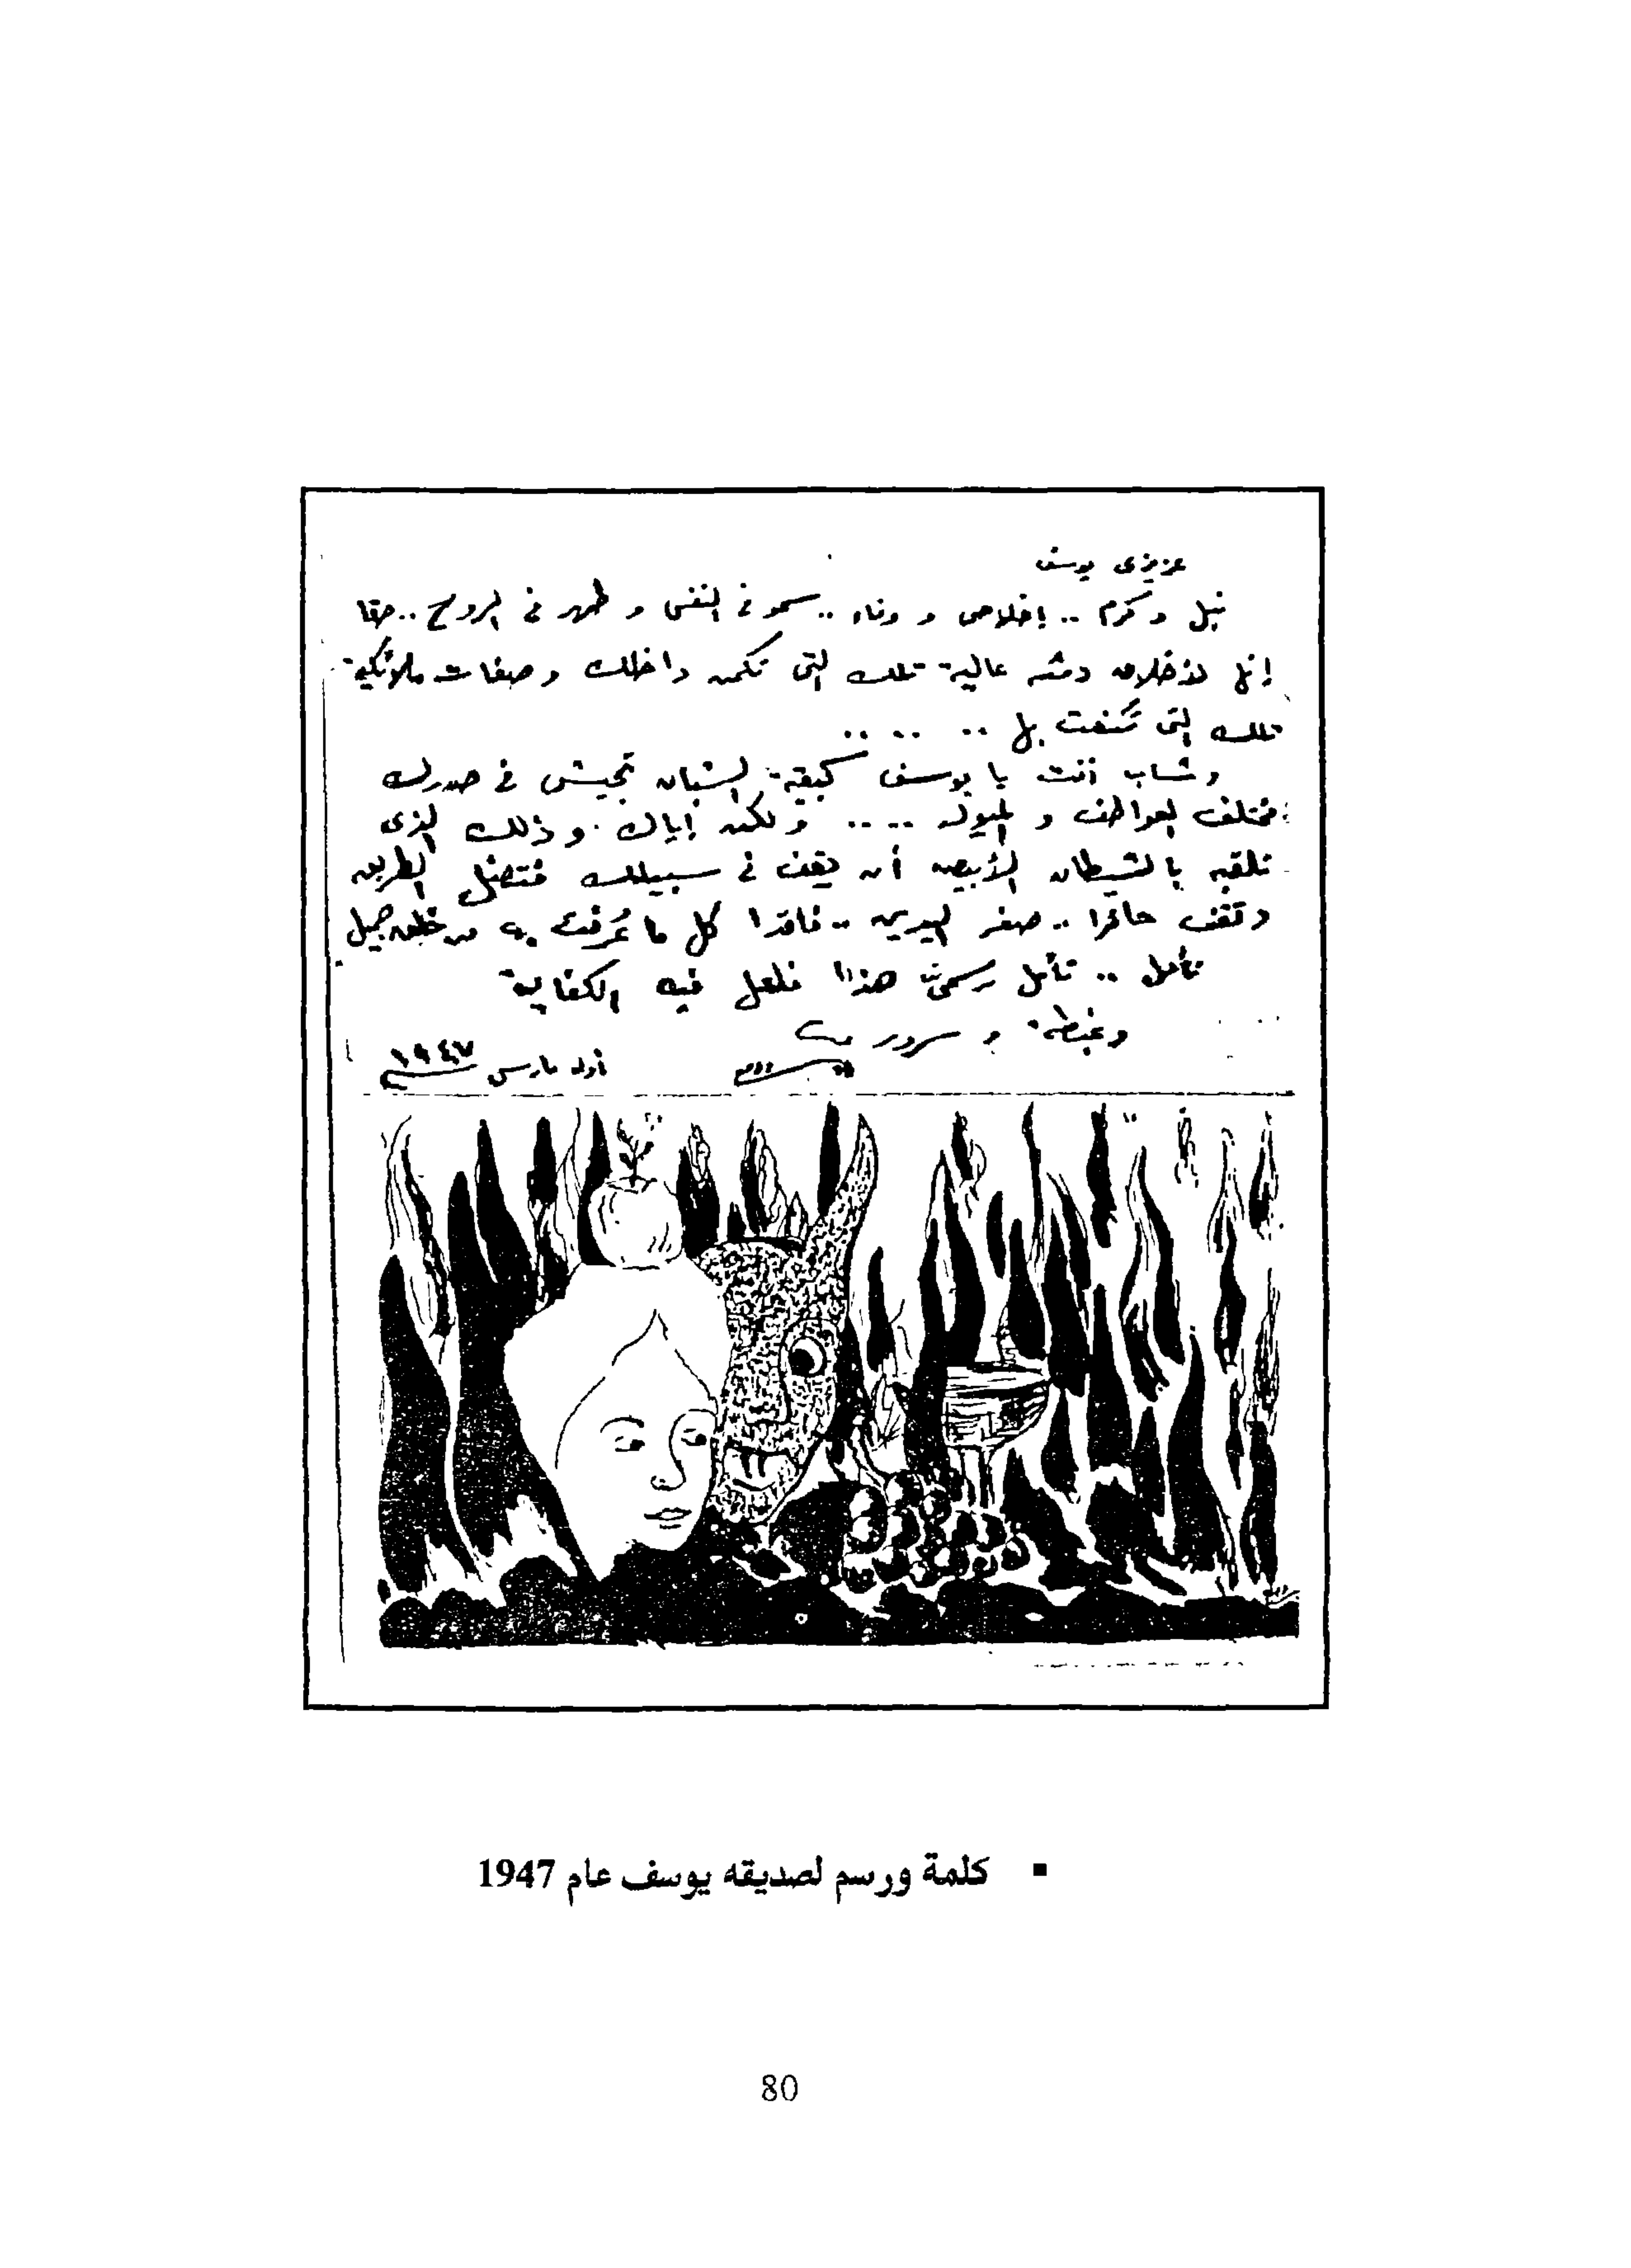 عزيزى يوسف
نبل وكرم .. إخلاص و وفاء .. سمو فى النفس و طهر فى الروح .. حقا
إنها لأخلاق عالية تلك التى تكمن داخلك وصفات ملائكية
تلك التى بها .. .. ..
وشاب أنت يا يوسف كبقية الشبان تجيش فى صدرك
مختلف العواطف و الميول .... ولكن إياك وذلك الذى
تلقبه بالشيطان الأبيض أن يقف فى سبيلك فتضل الطريق
وتقف حائرا .. صفر اليدين .. فاقدا كل ما عُرفت به من خلق جميل
تأمل .. تأمل رسمى هذا فلعل فيه الكفاية
وغبطة و سرور
أول مارس ١٩٤٧
▪ كلمة ورسم لصديقه يوسف عام 1947
80